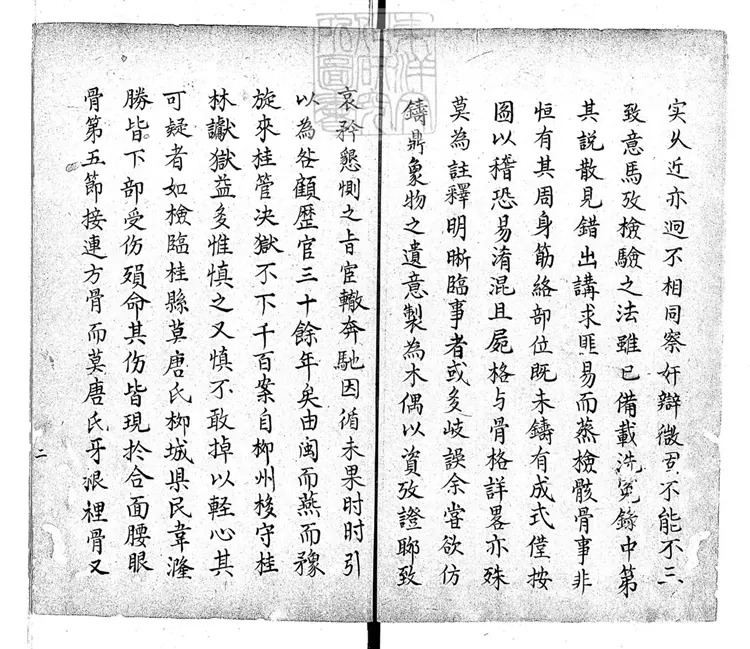 实乆近亦迥不相同察奸辯微固不能不三
致意馬攷檢驗之法雖已備載洗冤錄中第
其説散見錯出講求匪易而蒸檢骸骨事非
恒有其周身筋絡部位既未鑄有成式僅按
圖以稽恐易淆混且屍格与骨格詳畧亦殊
莫為註釋明晰臨事者或多岐誤余甞欲仿
鑄鼎象物之遺意製為木偶以資攷證聊致
哀矜懇惻之旨宦轍奔馳因循未果时时引
以為咎顧歷官三十餘年矣由闽而燕而豫
旋來桂管决獄不下千百案自柳州移守桂
林讞獄益多惟慎之又慎不敢掉以軽心其
可疑者如檢臨桂縣莫唐氏柳城県民韋漋
勝皆下部受伤殞命其伤皆現扵合面腰眼
骨第五節接連方骨而莫唐氏牙根裡骨又
二